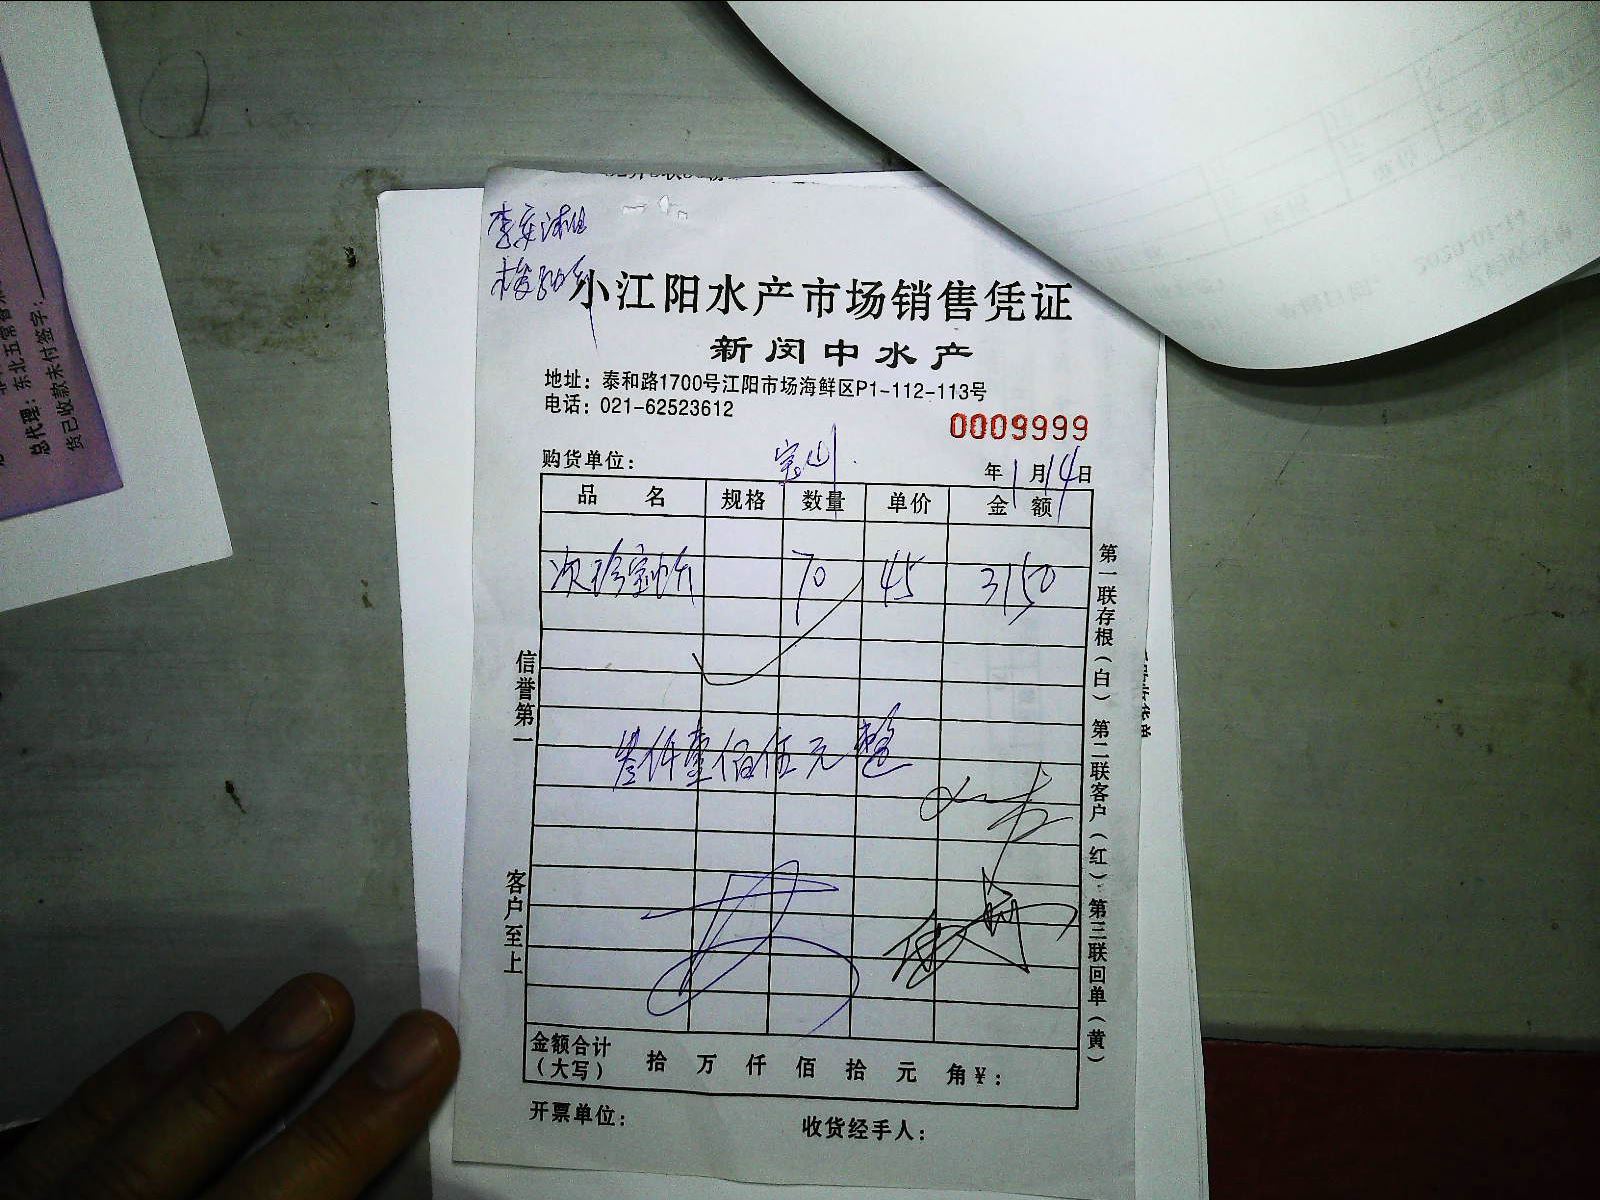 小江阳水产市场销售凭证
新闵中水产
地址：泰和路1700号江阳市场海鲜区P1-112-113号
电话：021-62523612
0009999
购货单位： 宝山 年1月14日
品 名 规格 数量 单价 金 额
次珍宝 70 45 3150
叁仟壹佰伍元整
信誉第一
客户至上
第一联存根（白） 第二联客户（红） 第三联回单（黄）
金额合计（大写） 拾 万 仟 佰 拾 元 角¥：
开票单位： 收货经手人：
总代理：东北五常
货已收款未付签字：